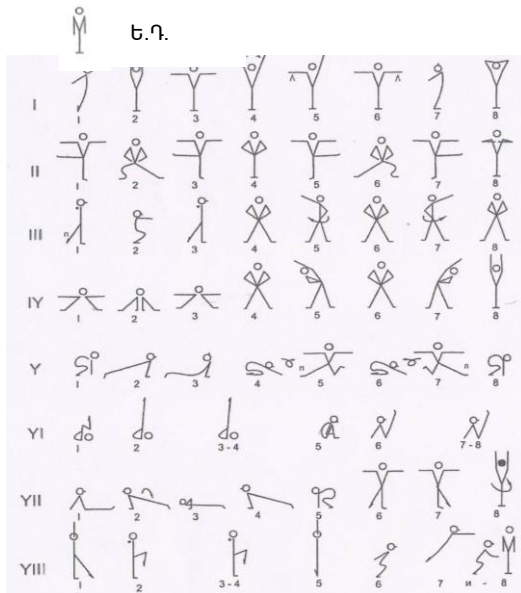 Ե.Դ.
I 1 2 3 4 5 6 7 8
II 1 2 3 4 5 6 7 8
III п 1 2 3 4 5 6 7 8
IY 1 2 3 4 5 6 7 8
Y 1 2 3 4 п 5 6 7 п 8
YI 1 2 3-4 5 6 7-8
YII 1 2 3 4 5 6 7 8
YIII 1 2 3-4 5 6 7 и - 8